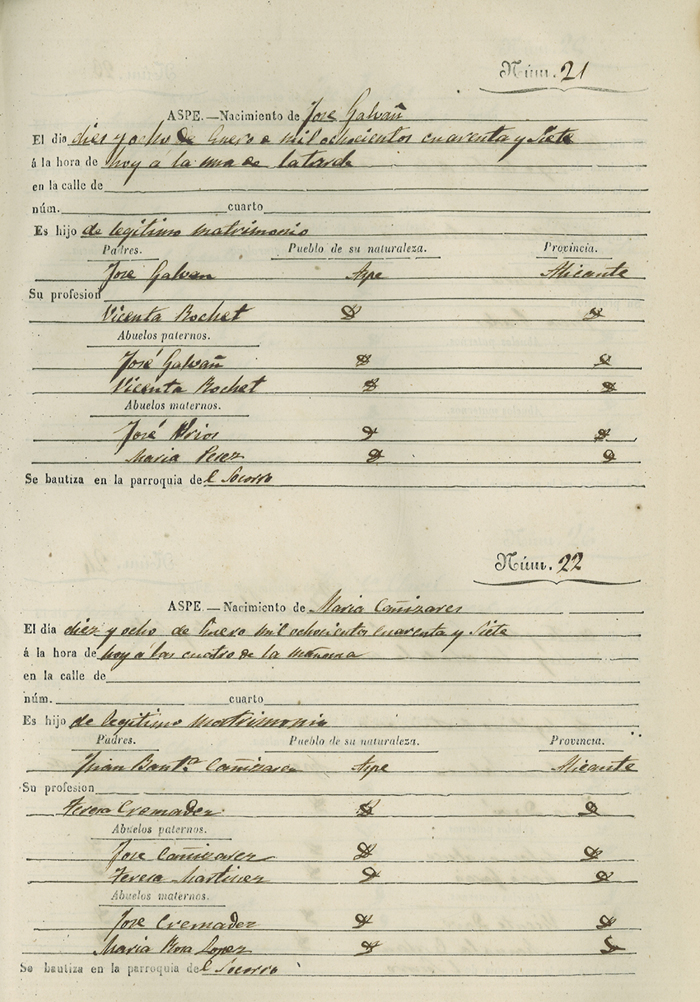 Núm. 21
ASPE.—Nacimiento de José Galvañ
El día diez y ocho de Enero e mil ochocientos cuarenta y Siete
á la hora de hoy a la una de la tarde
en la calle de
núm. cuarto
Es hijo de legitimo matrimonio
Padres. Pueblo de su naturaleza. Provincia.
José Galvan Aspe Alicante
Su profesion
Vicenta Bochet
Abuelos paternos.
José Galvañ
Vicenta Bochet
Abuelos maternos.
José
Maria Perez
Se bautiza en la parroquia del Socorro
Núm. 22
ASPE.—Nacimiento de Maria Cañizares
El día diez y ocho de Enero mil ochocientos cuarenta y Siete
á la hora de hoy a las cuatro de la mañana
en la calle de
núm. cuarto
Es hijo de legitimo matrimonio
Padres. Pueblo de su naturaleza. Provincia.
Juan Baut.ª Cañizares Aspe Alicante
Su profesion
Teresa Cremadez
Abuelos paternos.
Jose Cañizarez
Teresa Martinez
Abuelos maternos.
Jose Cremadez
Maria Rosa Lopez
Se bautiza en la parroquia del Socorro